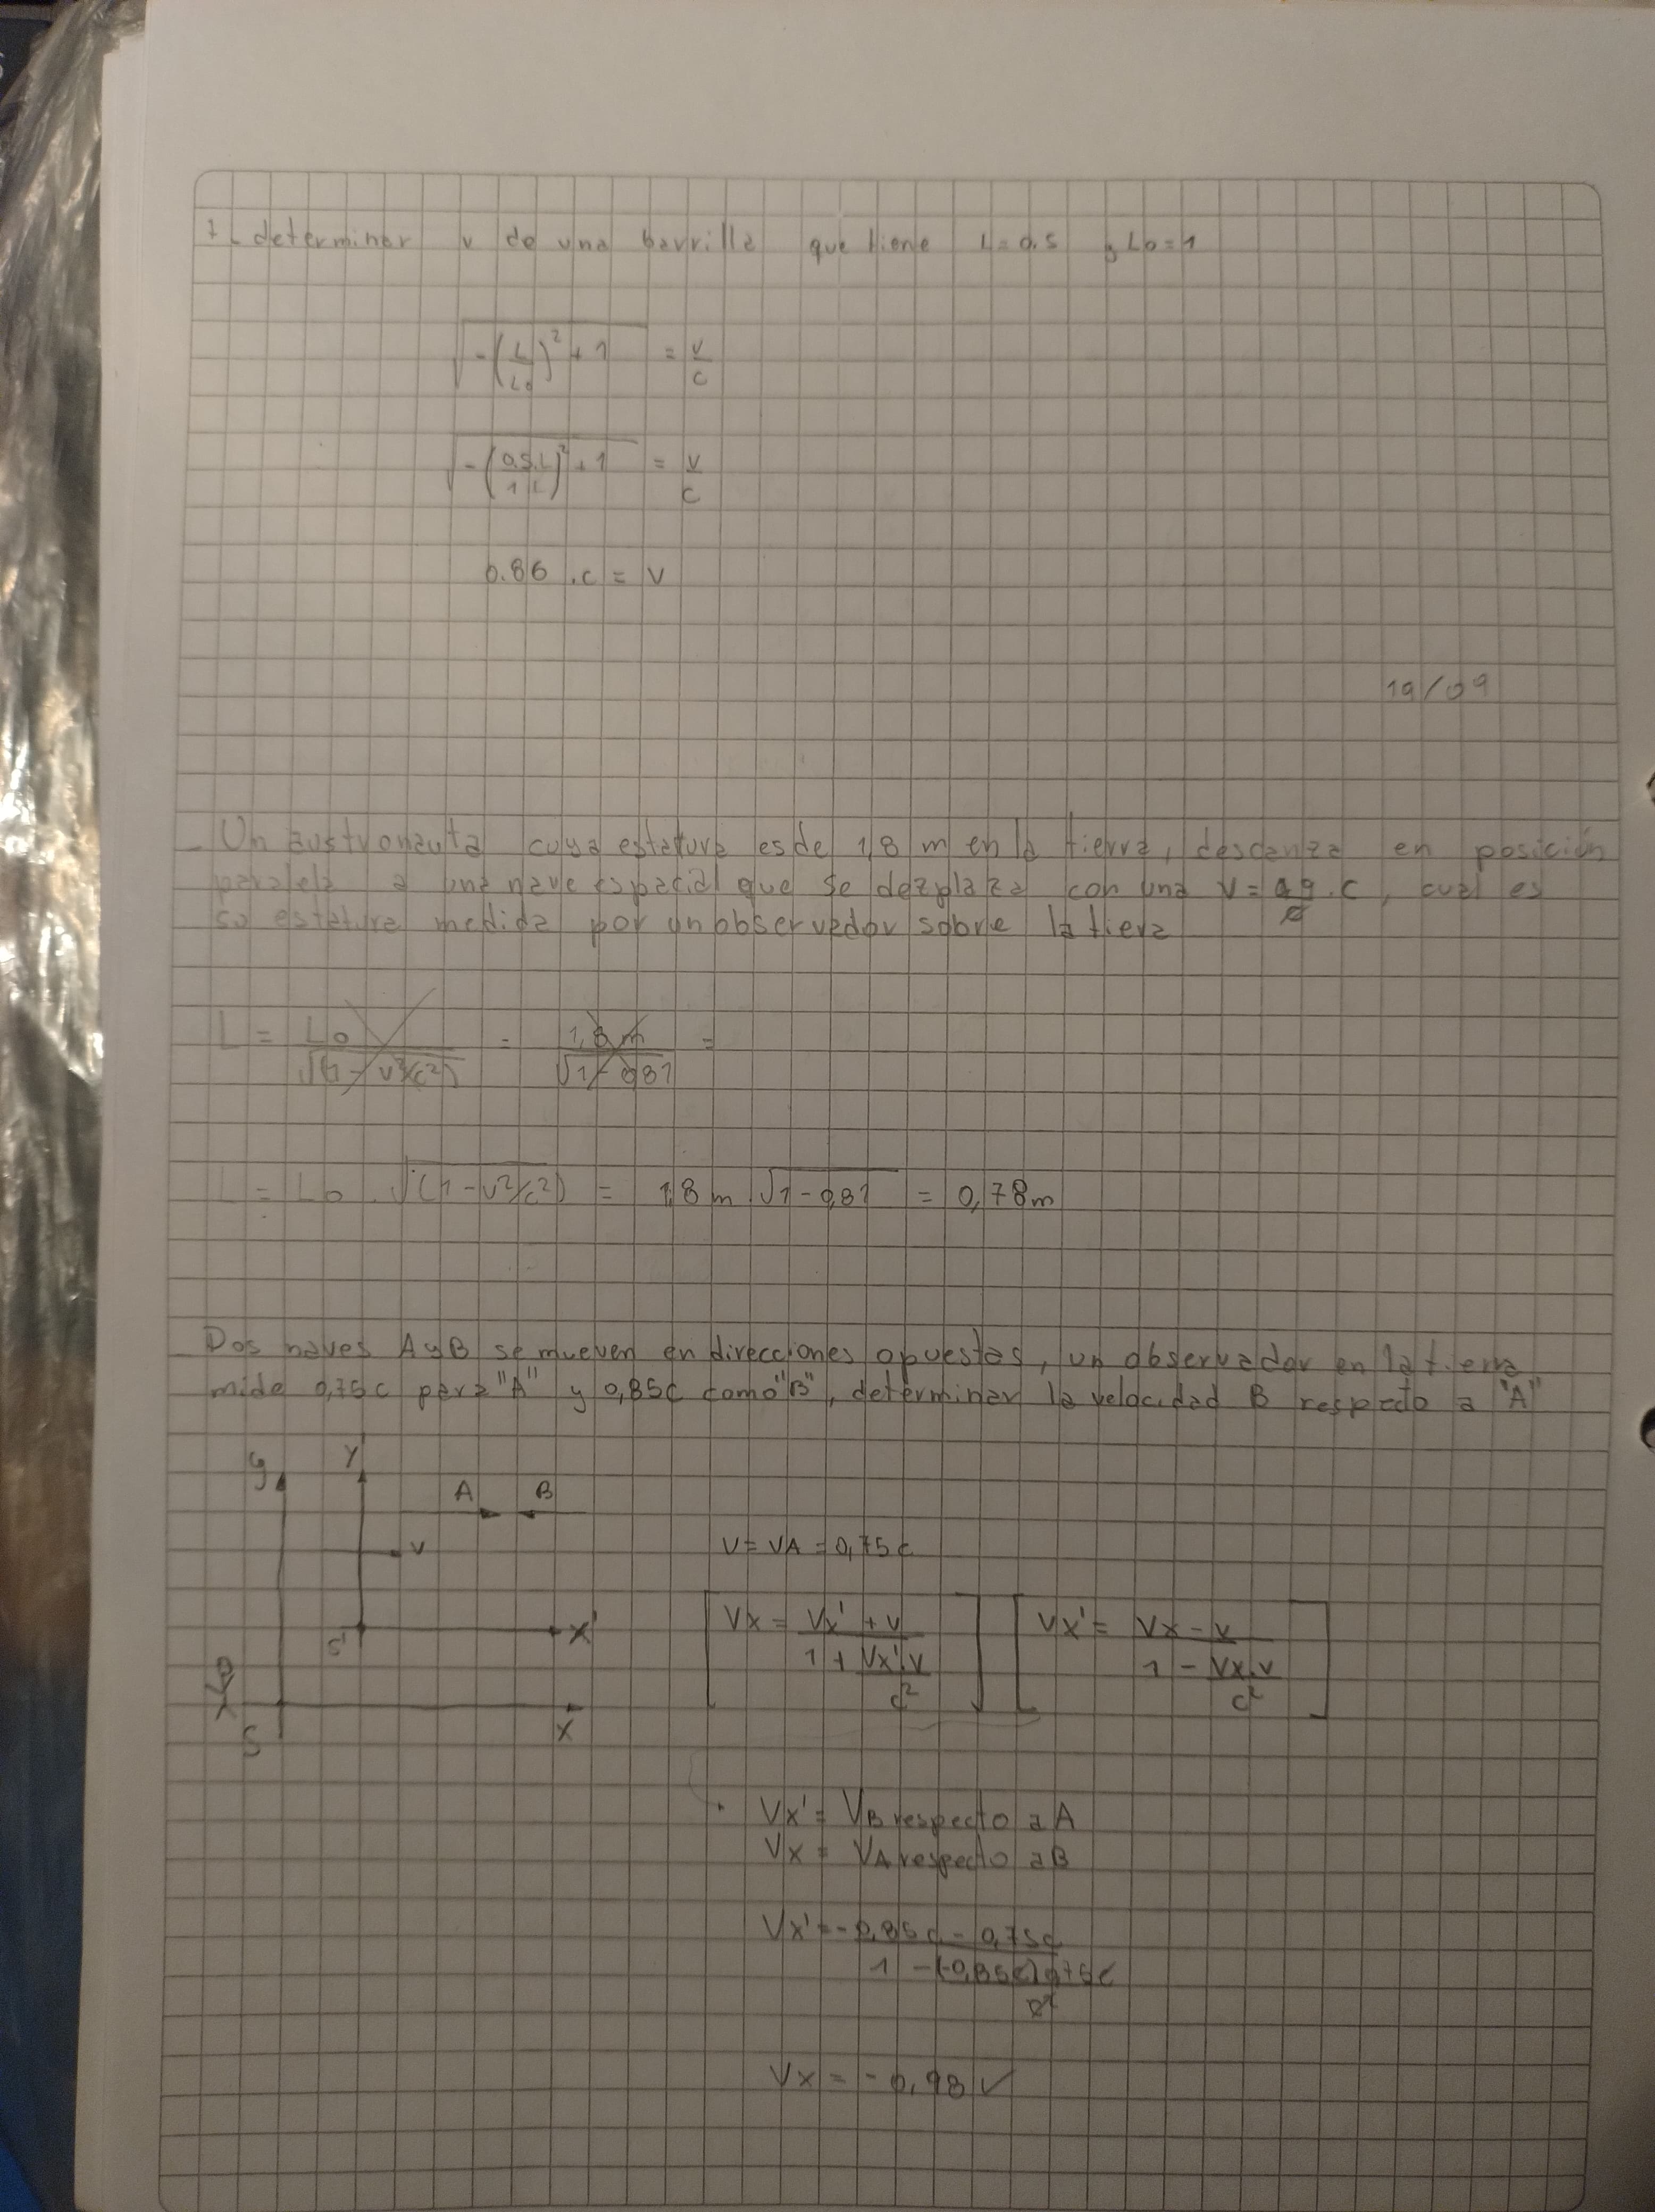 7_ determinar v de una barrilla que tiene L=0.5 y Lo=1
√(-(L/Lo)² + 1) = v/c
√(-(0.5.L/1L)² + 1) = v/c
0.86 .c = v
19/09
_ Un austronauta cuya estatura es de 1,8 m en la tierra, descanza en posición
paralela a una nave espacial que se dezplaza con una v = 0,9.c, cual es
so estatura medida por un observador sobre la tiera
L = Lo/√(1-v²/c²) = 1,8 m/√1-0,81 =
L = Lo . √(1-v²/c²) = 1,8 m √1-0,81 = 0,78m
_ Dos naves A y B se mueven en direcciones opuestas, un observador en la tierra
mide 0,75c para "A" y 0,85c como "B", determinar la velocidad B respecto a "A"
y y'
A B
v
V = VA = 0,75c
S' X'
Vx = (Vx' + v)/(1 + Vx'.v/c²) Vx' = (Vx - v)/(1 - Vx.v/c²)
S X
Vx' = VB respecto a A
Vx = VA respecto a B
Vx' = (-0,85c - 0,75c)/(1 - (-0,85c)0,75c/c²)
Vx = -0,98 ✓